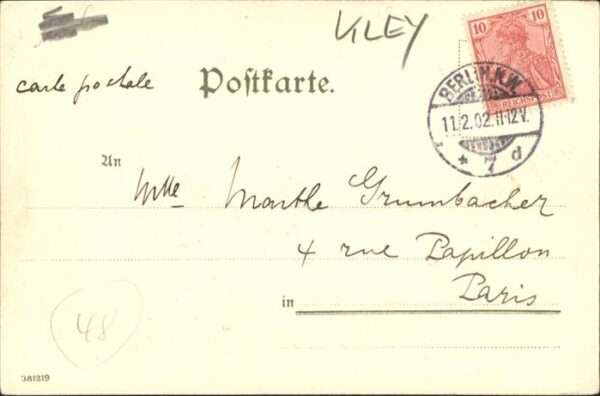 KLEY
10
REICHSPOST
carte postale
Postkarte.
BERLIN.N.W.
11.2.02.11-12V.
* 7 d
An
Mlle Marthe Grumbacher
4 rue Papillon
in Paris
48
381219